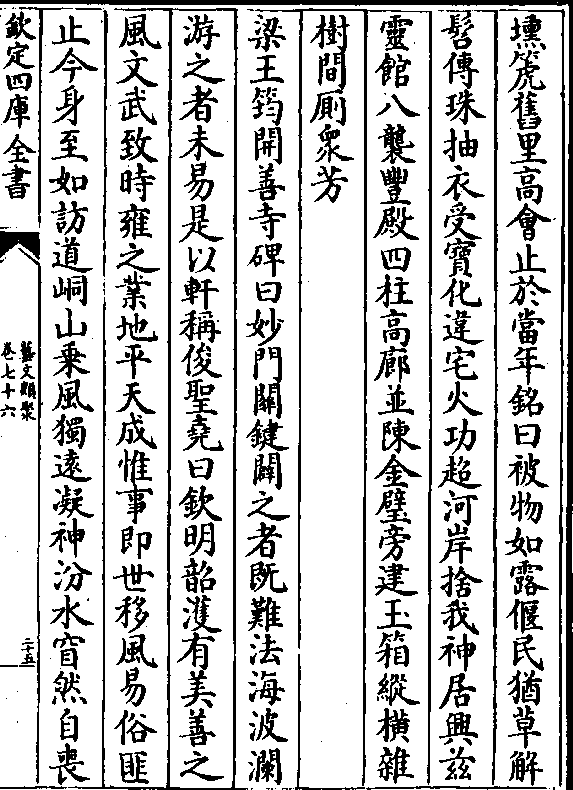 壎箎舊里高會止於當年銘曰被物如露偃民猶草解
髻傳珠抽衣受寶化違宅火功超河岸捨我神居興兹
靈館八襲豐殿四柱高廊並陳金璧旁建玉箱縱橫雜
樹間厠衆芳
梁王筠開善寺碑曰妙門關鍵闢之者既難法海波瀾
游之者未易是以軒稱俊聖堯曰欽明韶濩有美善之
風文武致時雍之業地平天成惟事即世移風易俗匪
止今身至如訪道峒山乗風獨逺凝神汾水窅然自喪
欽定四庫全書
藝文類聚
卷七十六
二十五